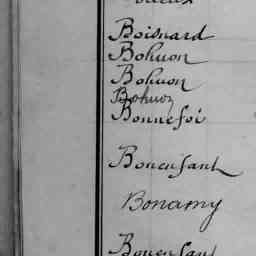 Boisnard
Bohuon
Bohuon
Bohuon
Bonnefoi
Bonenfant
Bonamy
Bonenfant